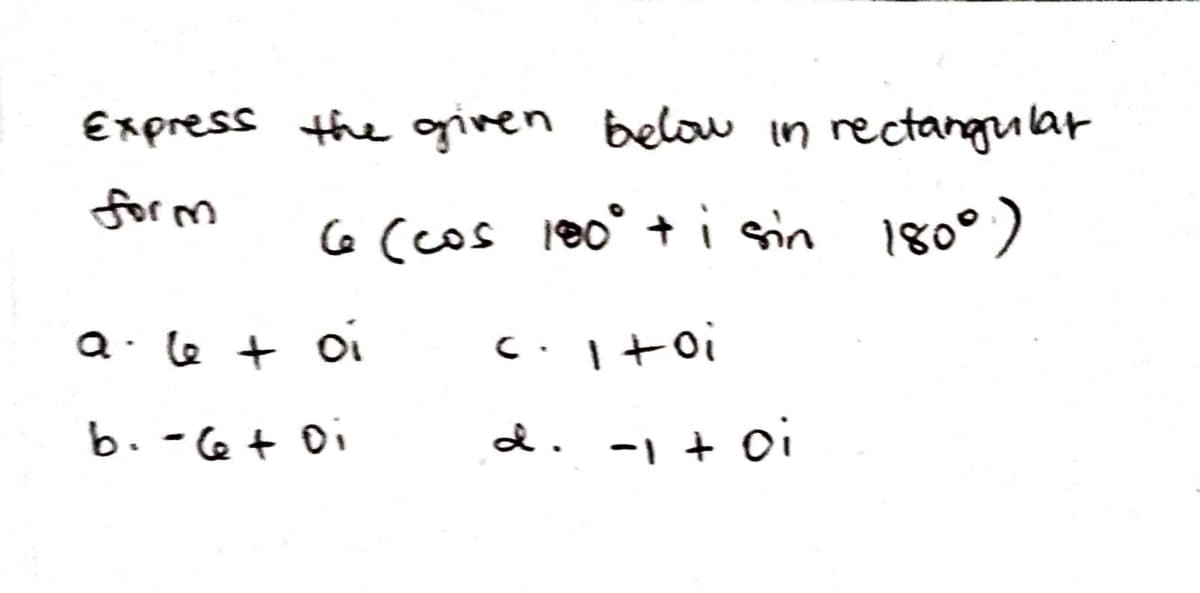 Express the given below in rectangular
form 6 (cos 180° + i sin 180°)
a. 6 + 0i c. 1 + 0i
b. -6 + 0i d. -1 + 0i